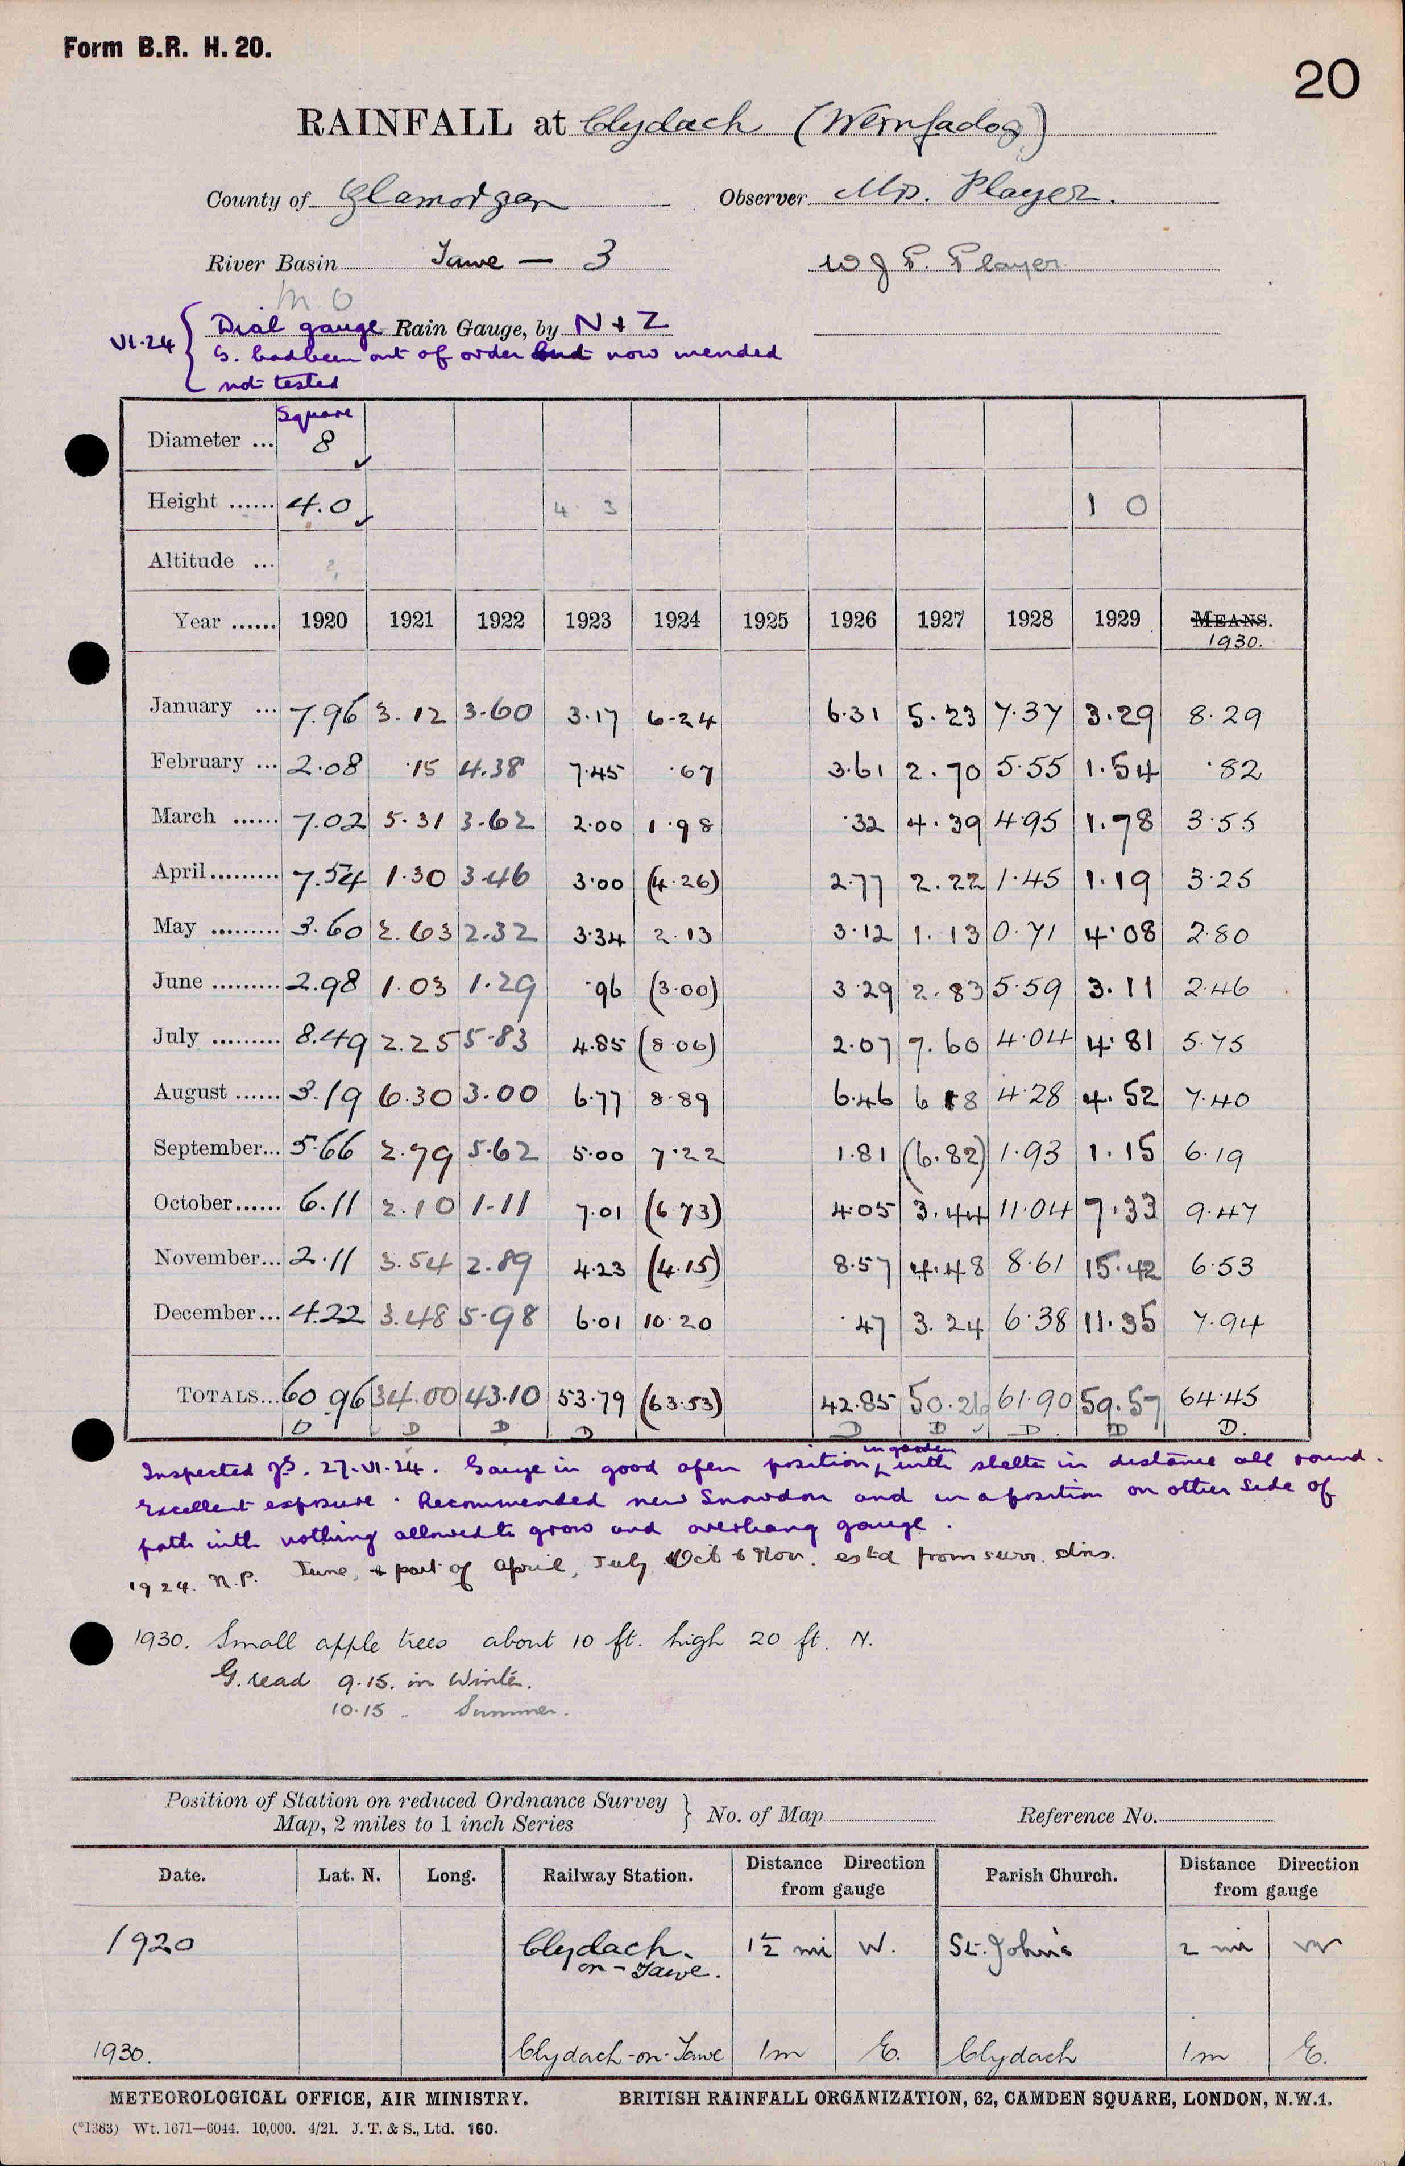 Form B.R. H. 20.
20
RAINFALL at Clydach (Wernfadog)
County of Glamorgan Observer Mrs. Player.
River Basin Tawe — 3 W J P. Player
M O
VI.24 { Dial gauge Rain Gauge, by N + Z
G. had been out of order but now mended
not tested
Diameter ... Square 8
Height ...... 4.0 4 3 1 0
Altitude ...
Year ...... 1920 1921 1922 1923 1924 1925 1926 1927 1928 1929 MEANS. 1930.
January ... 7.96 3.12 3.60 3.17 6.24 6.31 5.23 7.37 3.29 8.29
February ... 2.08 .15 4.38 7.45 .67 3.61 2.70 5.55 1.54 .82
March ...... 7.02 5.31 3.62 2.00 1.98 .32 4.39 4.95 1.78 3.55
April......... 7.54 1.30 3.46 3.00 (4.26) 2.77 2.22 1.45 1.19 3.25
May ......... 3.60 2.63 2.32 3.34 2.13 3.12 1.13 0.71 4.08 2.80
June ......... 2.98 1.03 1.29 .96 (3.00) 3.29 2.83 5.59 3.11 2.46
July ......... 8.49 2.25 5.83 4.85 (8.06) 2.07 7.60 4.04 4.81 5.75
August ...... 3.19 6.30 3.00 6.77 8.89 6.46 6.18 4.28 4.52 7.40
September... 5.66 2.79 5.62 5.00 7.22 1.81 (6.82) 1.93 1.15 6.19
October...... 6.11 2.10 1.11 7.01 (6.73) 4.05 3.44 11.04 7.33 9.47
November... 2.11 3.54 2.89 4.23 (4.15) 8.57 4.48 8.61 15.42 6.53
December... 4.22 3.48 5.98 6.01 10.20 .47 3.24 6.38 11.35 7.94
TOTALS... 60.96 34.00 43.10 53.79 (63.53) 42.85 50.26 61.90 59.57 64.45
D D D D D D D D D.
Inspected 27.VI.24. Gauge in good open position, in garden with shelter in distance all round.
Excellent exposure. Recommended new Snowdon and in a position on other side of
path with nothing allowed to grow and overhang gauge.
1924. N.P. June, & part of April, July Oct & Nov. estd from surr. stns.
1930. Small apple trees about 10 ft. high 20 ft. N.
G. read 9.15. in Winter.
10.15 .. Summer.
Position of Station on reduced Ordnance Survey
Map, 2 miles to 1 inch Series } No. of Map Reference No.
Date. Lat. N. Long. Railway Station. Distance Direction from gauge Parish Church. Distance Direction from gauge
1920 Clydach-on-Tawe. 1½ mi W. St. John's 2 mi W
1930. Clydach-on-Tawe 1m E. Clydach 1m E.
METEOROLOGICAL OFFICE, AIR MINISTRY. BRITISH RAINFALL ORGANIZATION, 62, CAMDEN SQUARE, LONDON, N.W.1.
(*1383) Wt. 1671—6044. 10,000. 4/21. J. T. & S., Ltd. 160.